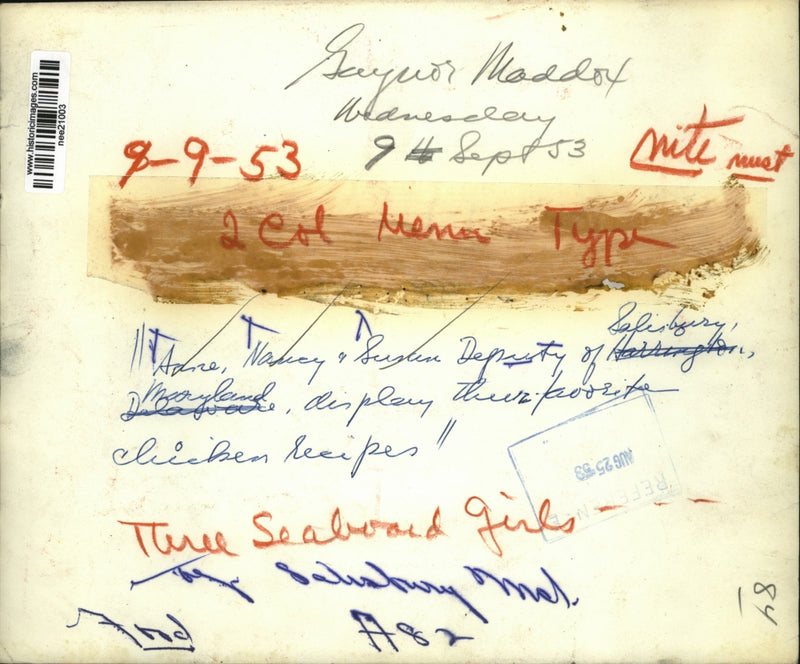 www.historicimages.com
nee21003
Gaynor Maddox
Wednesday
9th Sept 53
9-9-53
nite must
2 Col Menu Type
"Anne, Nancy & Susan Deputy of Harrington, Salisbury,
Delaware, Maryland, display their favorite
chicken recipes"
AUG 25 '53
REFERENCE
Three Seaboard Girls - - -
Salisbury Md.
Food
A82
84